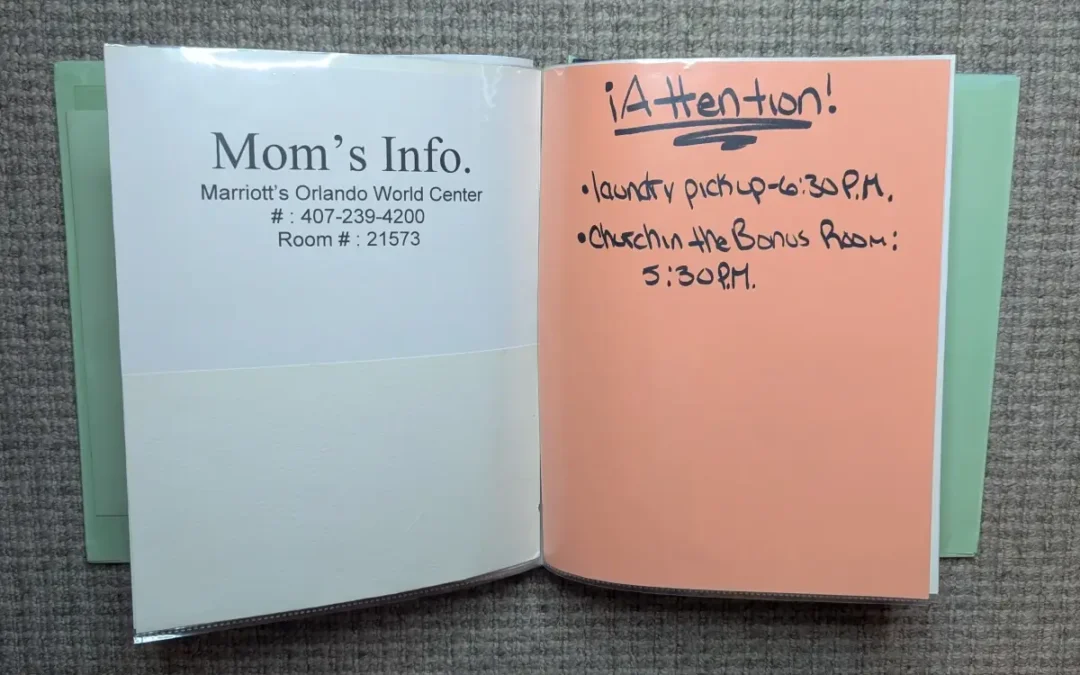 Mom's Info.
Marriott's Orlando World Center
# : 407-239-4200
Room # : 21573
¡Attention!
•laundry pickup-6:30 P.M.
•Church in the Bonus Room:
5:30 P.M.